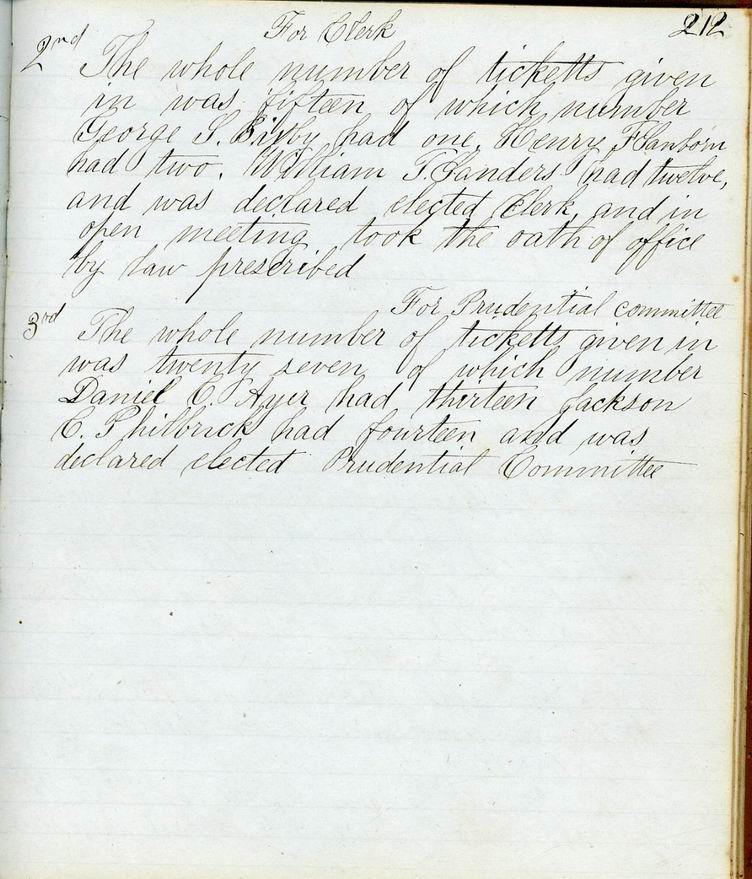 For Clerk 212
2nd The whole number of ticketts given
in was fifteen of which number
George S. Bixby had one, Henry F Sanborn
had two. William T. Sanders had twelve,
and was declared elected Clerk, and in
open meeting took the oath of office
by law prescribed
For Prudential committee
3rd The whole number of ticketts given in
was twenty seven of which number
Daniel C. Ayer had thirteen Jackson
C. Philbrick had fourteen and was
declared elected Prudential Committee